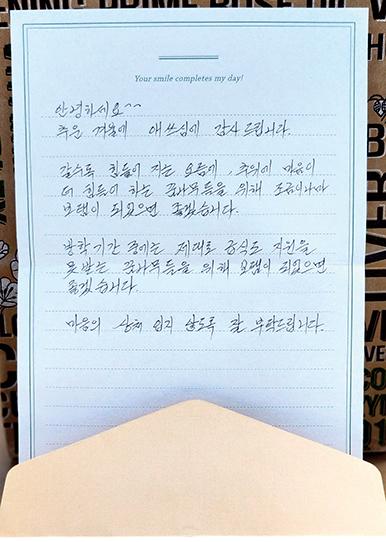 Your smile completes my day!
안녕하세요~~
추운 겨울에 애쓰심에 감사드립니다.
갈수록 힘들어 지는 요즘에, 추위에 마음이
더 힘들어 하는 꿈나무들을 위해 조금이나마
보탬이 되었으면 좋겠습니다.
방학기간 중에는 제대로 급식도 지원을
못받는 꿈나무들을 위해 보탬이 되었으면
좋겠습니다.
마음의 상처 입지 않도록 잘 부탁드립니다.